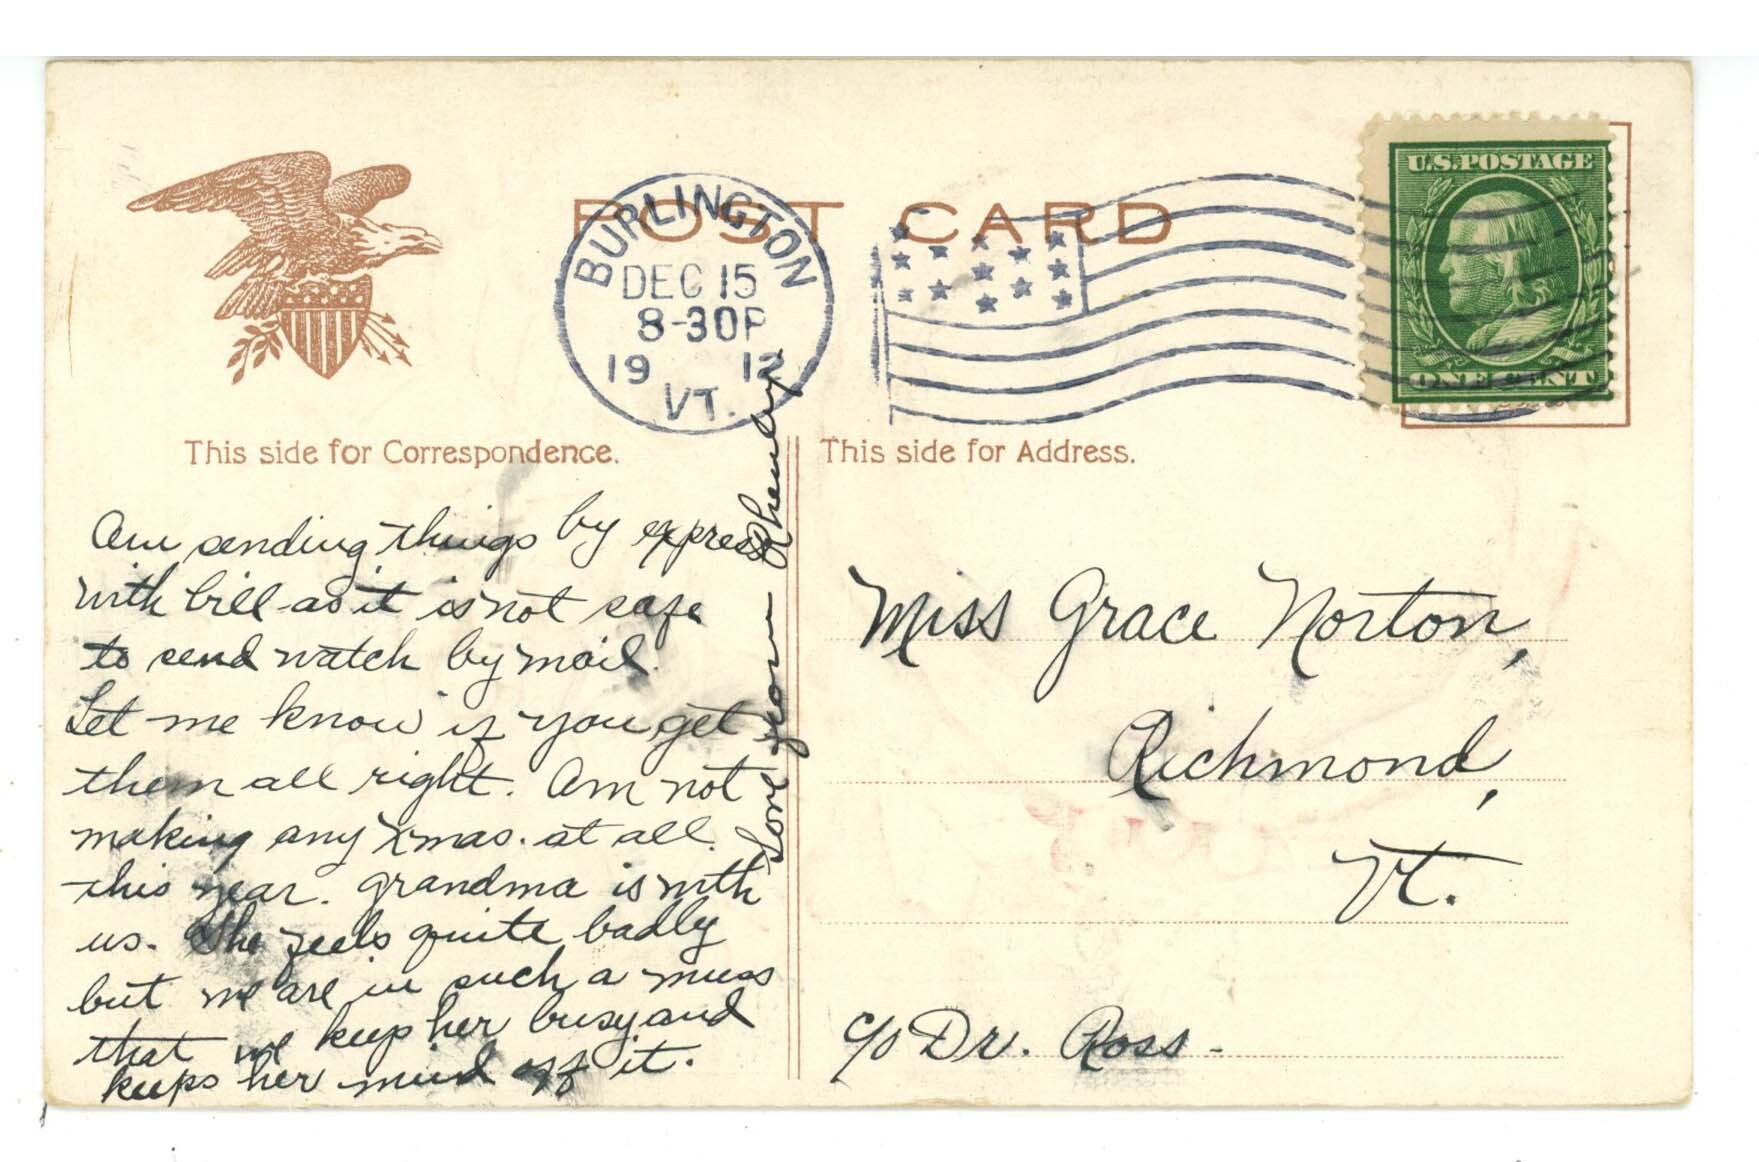 POST CARD
BURLINGTON
DEC 15
8-30P
19 12
VT.
U.S. POSTAGE
ONE CENT
This side for Correspondence.
Am sending things by express
with bill as it is not safe
to send watch by mail.
Let me know if you get
them all right. Am not
making any Xmas. at all
this year. Grandma is with
us. She feels quite badly
but we are in such a muss
that we keep her busy and
keeps her mind off it.
Love from
This side for Address.
Miss Grace Norton,
Richmond,
Vt.
c/o Dr. Ross -